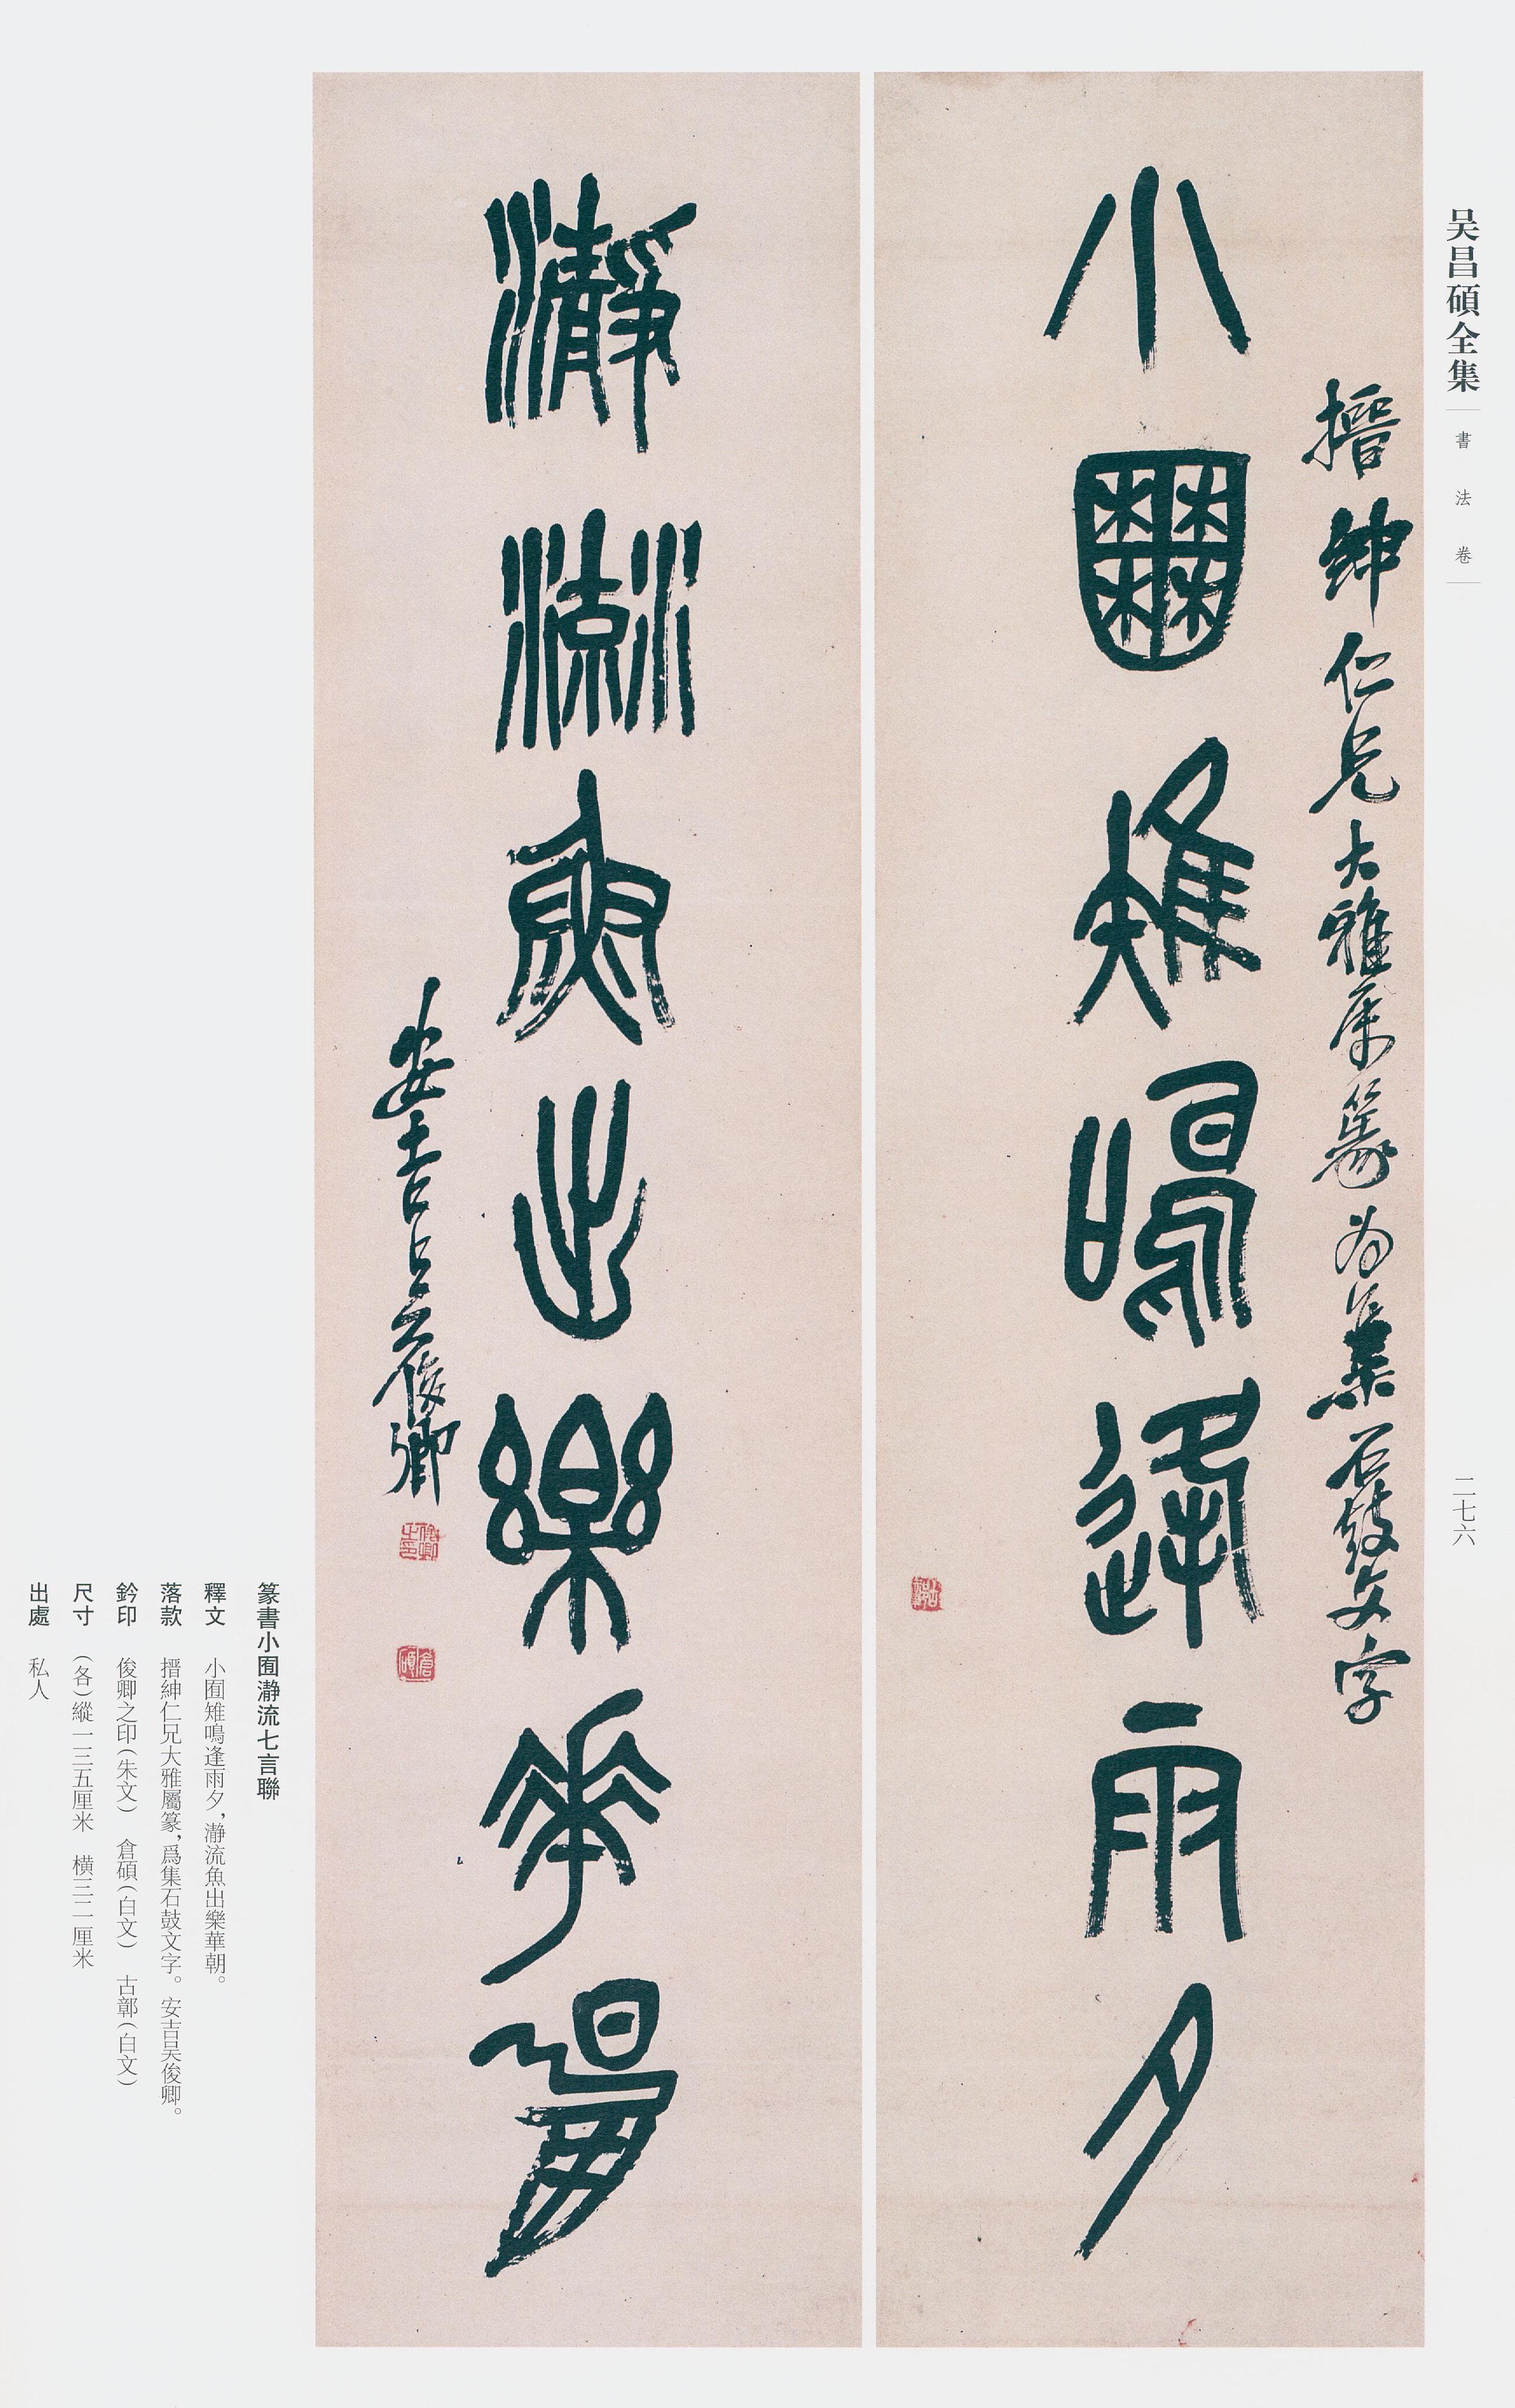 吴昌碩全集
書法卷
二七六
搢紳仁兄大雅屬篆為集石鼓文字
小囿雉鳴逢雨夕
古鄣
瀞流魚出樂華朝
安吉吳俊卿
俊卿之印
倉碩
篆書小囿瀞流七言聯
釋文 小囿雉鳴逢雨夕,瀞流魚出樂華朝。
落款 搢紳仁兄大雅屬篆,爲集石鼓文字。安吉吴俊卿。
鈐印 俊卿之印(朱文) 倉碩(白文) 古鄣(白文)
尺寸 (各)縱一三五厘米 橫三二厘米
出處 私人